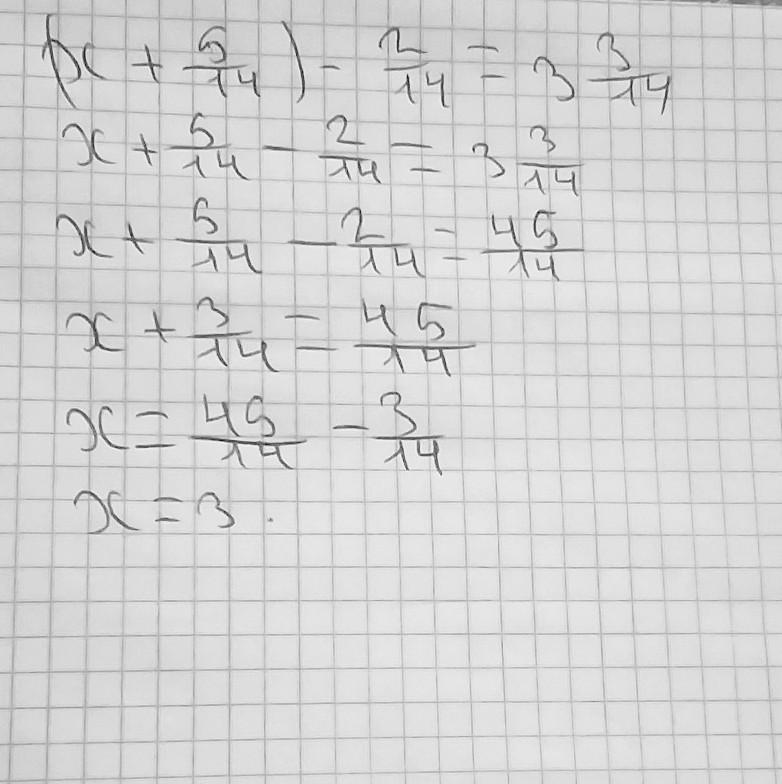 (x + 5/14) - 2/14 = 3 3/14
x + 5/14 - 2/14 = 3 3/14
x + 5/14 - 2/14 = 45/14
x + 3/14 = 45/14
x = 45/14 - 3/14
x = 3.